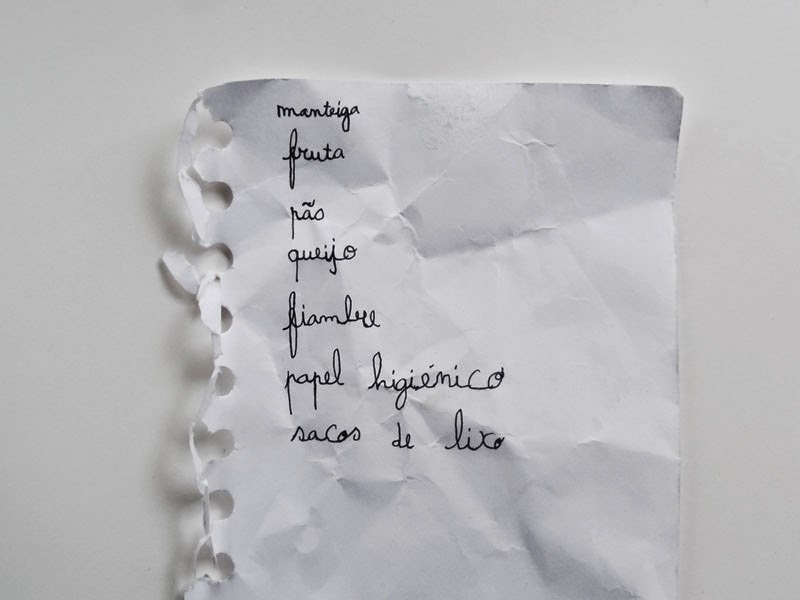 manteiga
fruta
pão
queijo
fiambre
papel higiénico
sacos de lixo